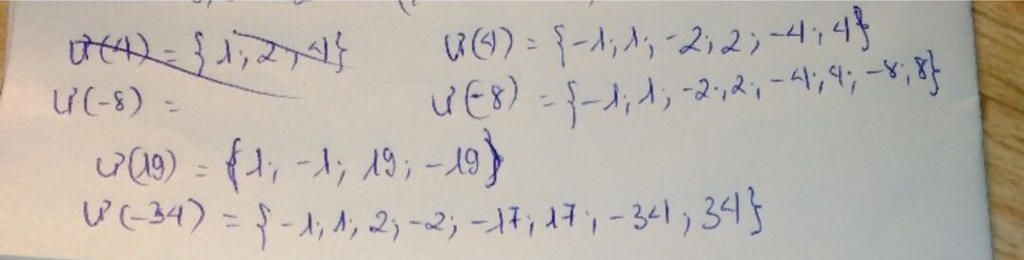 Ư(4) = {1; 2; 4}
Ư(4) = {-1; 1; -2; 2; -4; 4}
Ư(-8) =
Ư(-8) = {-1; 1; -2; 2; -4; 4; -8; 8}
Ư(19) = {1; -1; 19; -19}
Ư(-34) = {-1; 1; 2; -2; -17; 17; -34; 34}